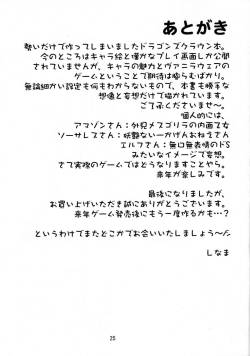 あとがき
勢いだけで作ってしまいましたドラゴンズクラウン本。
今のところはキャラ絵と僅かなプレイ画面しか公開
されていませんが、キャラの魅力とヴァニラウェアの
ゲームということで期待は増らむばかり。
無論細かい設定も何もわからないもので、本書も勝手な
想像と妄想だけで描かれています。
ご了承くださいませ〜。
個人的には、
アマゾンさん:外見メスゴリラの内面乙女
ソーサレスさん:妖艶ないーかげんおねえさん
エルフさん:無口無表情のドS
みたいなイメージで妄想。
さて実際のゲームではどうなりますことやら。
来年が楽しみです。
最後になりましたが、
お買い上げいただき誠にありがとうございます。
来年ゲーム発売後にもう一度作るかも…?
というわけでまたどこかでお会いいたしましょう〜ノシ
しなま
25